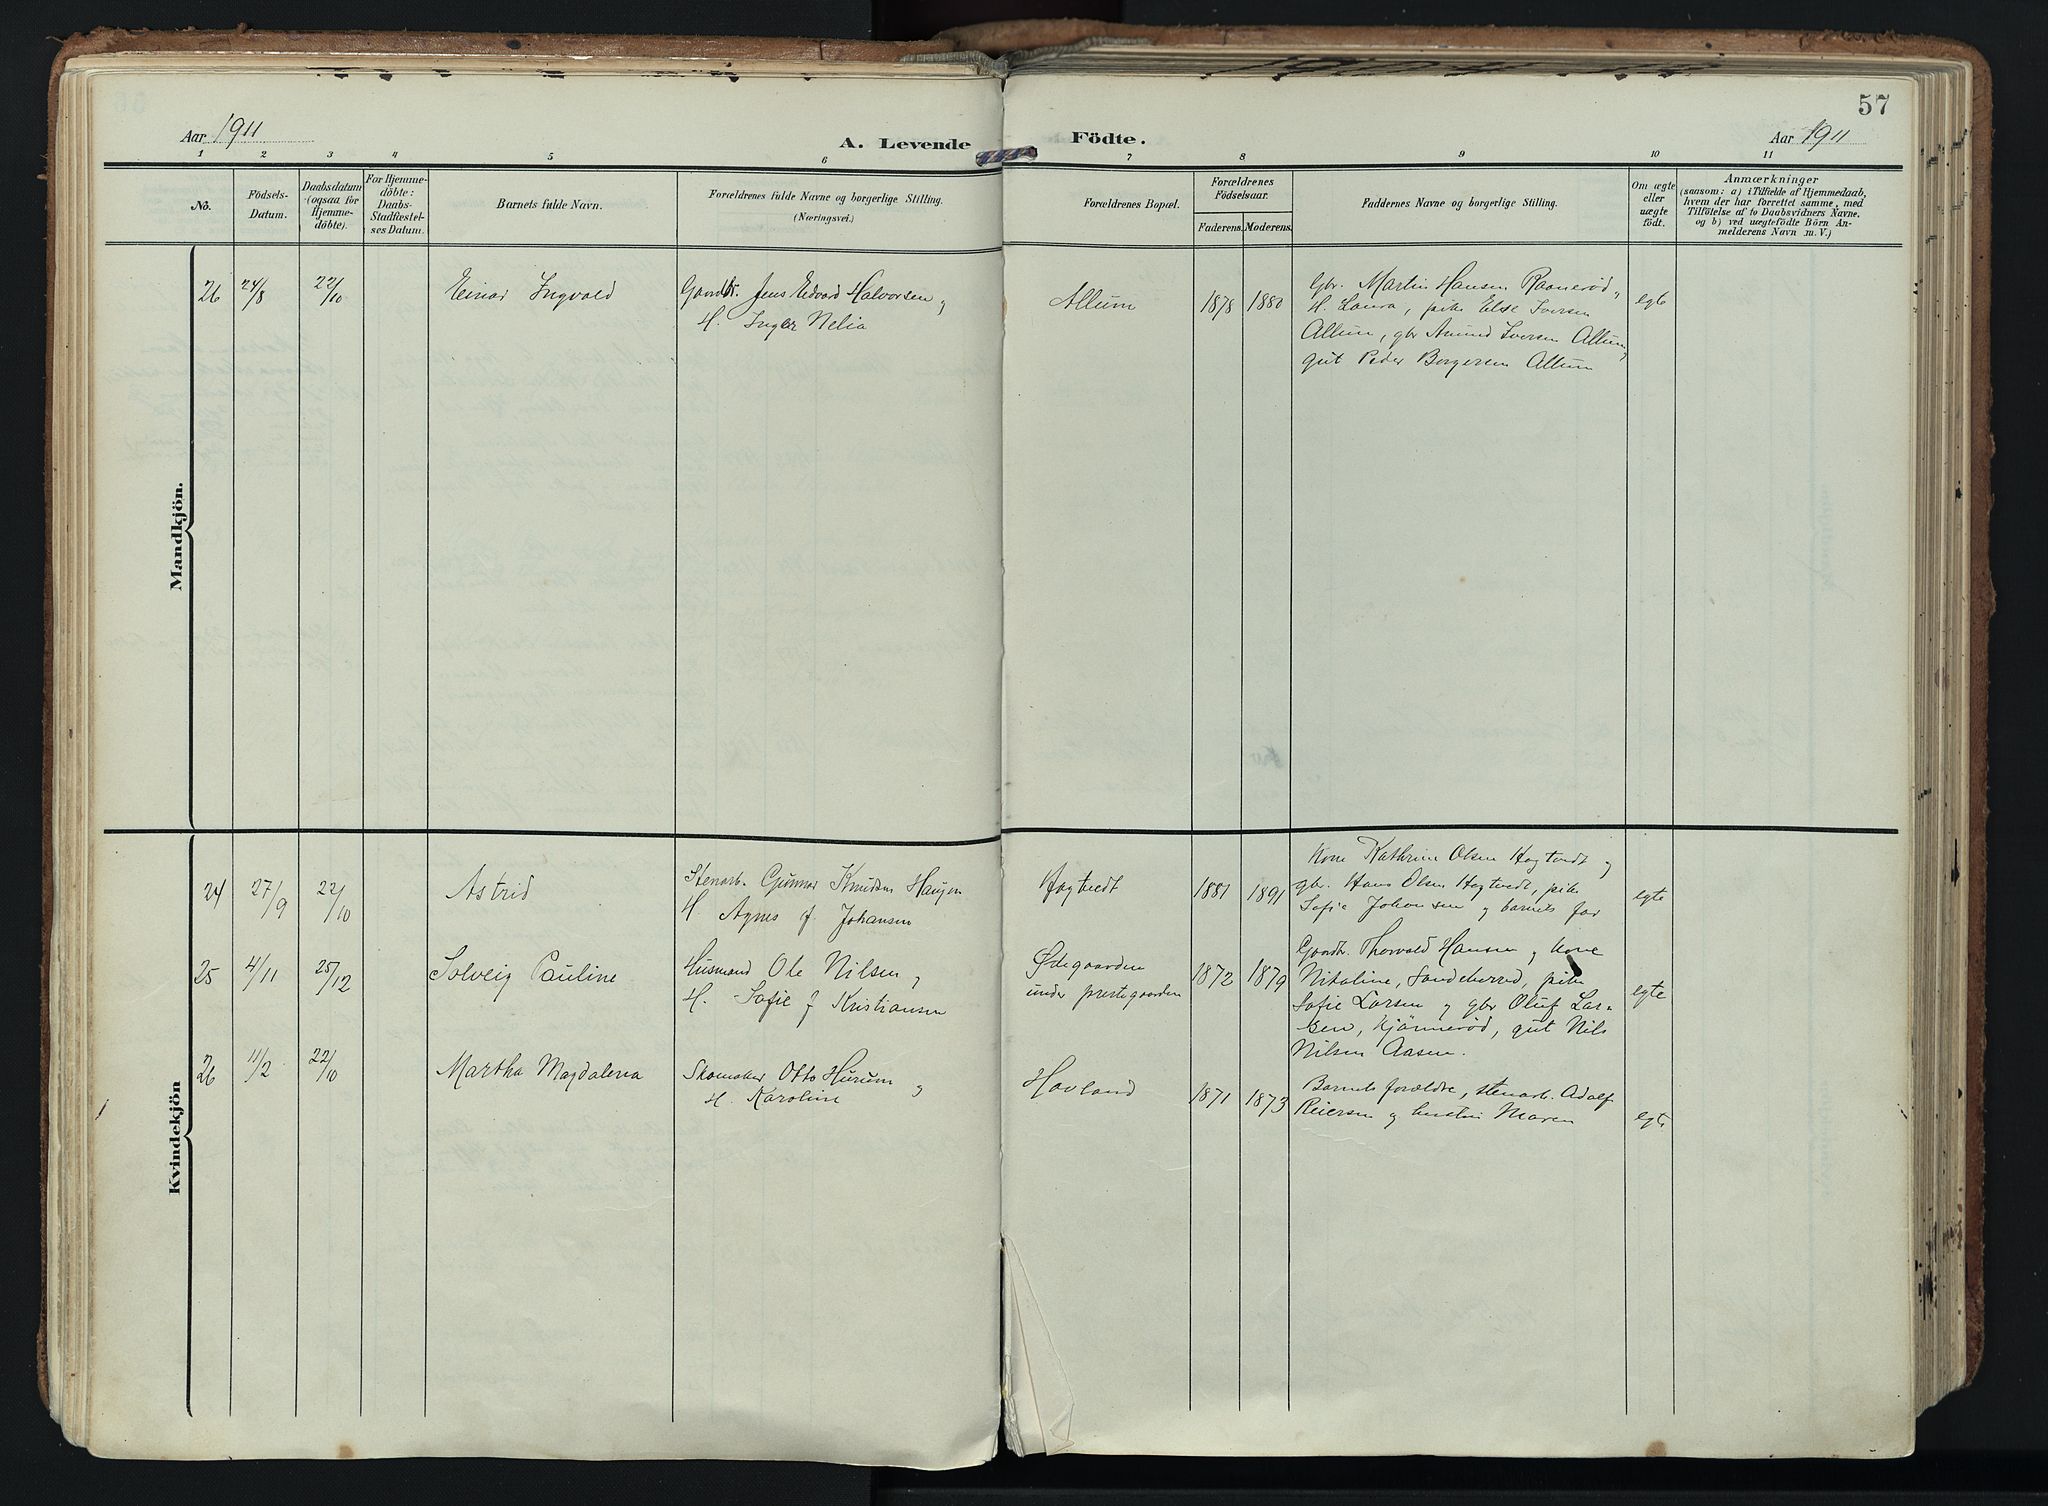 57
Aar 1911
A. Levende Födte.
Aar 1911
1 2 3 4 5 6 7 8 9 10 11
No.
Födsels-
Datum.
Daabsdatum
(ogsaa for
Hjemme-
döbte).
For Hjemme-
döbte:
Daabs-
Stadfæstel-
ses Datum.
Barnets fulde Navn.
Forældrenes fulde Navne og borgerlige Stilling.
(Næringsvei.)
Forældrenes Bopæl.
Forældrenes
Födselsaar.
Faderens. Moderens.
Faddernes Navne og borgerlige Stilling.
Om ægte
eller
uægte
födt.
Anmærkninger
(saasom: a) i Tilfælde af Hjemmedaab,
hvem der har forrettet samme, med
Tilföielse af to Daabsvidners Navne,
og b) ved uægtefödte Börn An-
melderens Navn m. V.)
Mandkjön.
26 24/8 22/10 Einar Ingvald
Jens Edvard Halvorsen og
H. Inger Nelia
Allum 1878 1880
Gbr. Martin Hansen Raanerød,
H. Laura, pike Else Iversen
Allum, gbr Amund Iversen Allum,
gut Peder Borgersen Allum
egte
Kvindekjön
24 27/9 22/10 Astrid
Stenarb. Gunnar Knudsen Haugen
H. Agnes f. Johansen
Hogtvedt 1881 1891
Kone Kathrine Olsen Hogtvedt og
gbr. Hans Olsen Hogtvedt, pike
Sofie Johansen og barnets far
egte
25 4/11 25/12 Solveig Pauline
Husmand Ole Nilsen,
H. Sofie f Kristiansen
Ødegaarden
under prestegaarden
1872 1879
Gaardbr. Thorvald Hansen og kone
Nikoline, Sandeherred, pike
Sofie Larsen og gbr Oluf Lar-
sen, Kjønnerød, gut Nils
Nilsen Aasen.
egte
26 11/2 22/10 Martha Magdalena
Skomaker Otto Hurum og
H. Karoline
Hovland 1871 1873
Barnets forældre, stenarb. Adolf
Reiersen og hustru Maren
egte